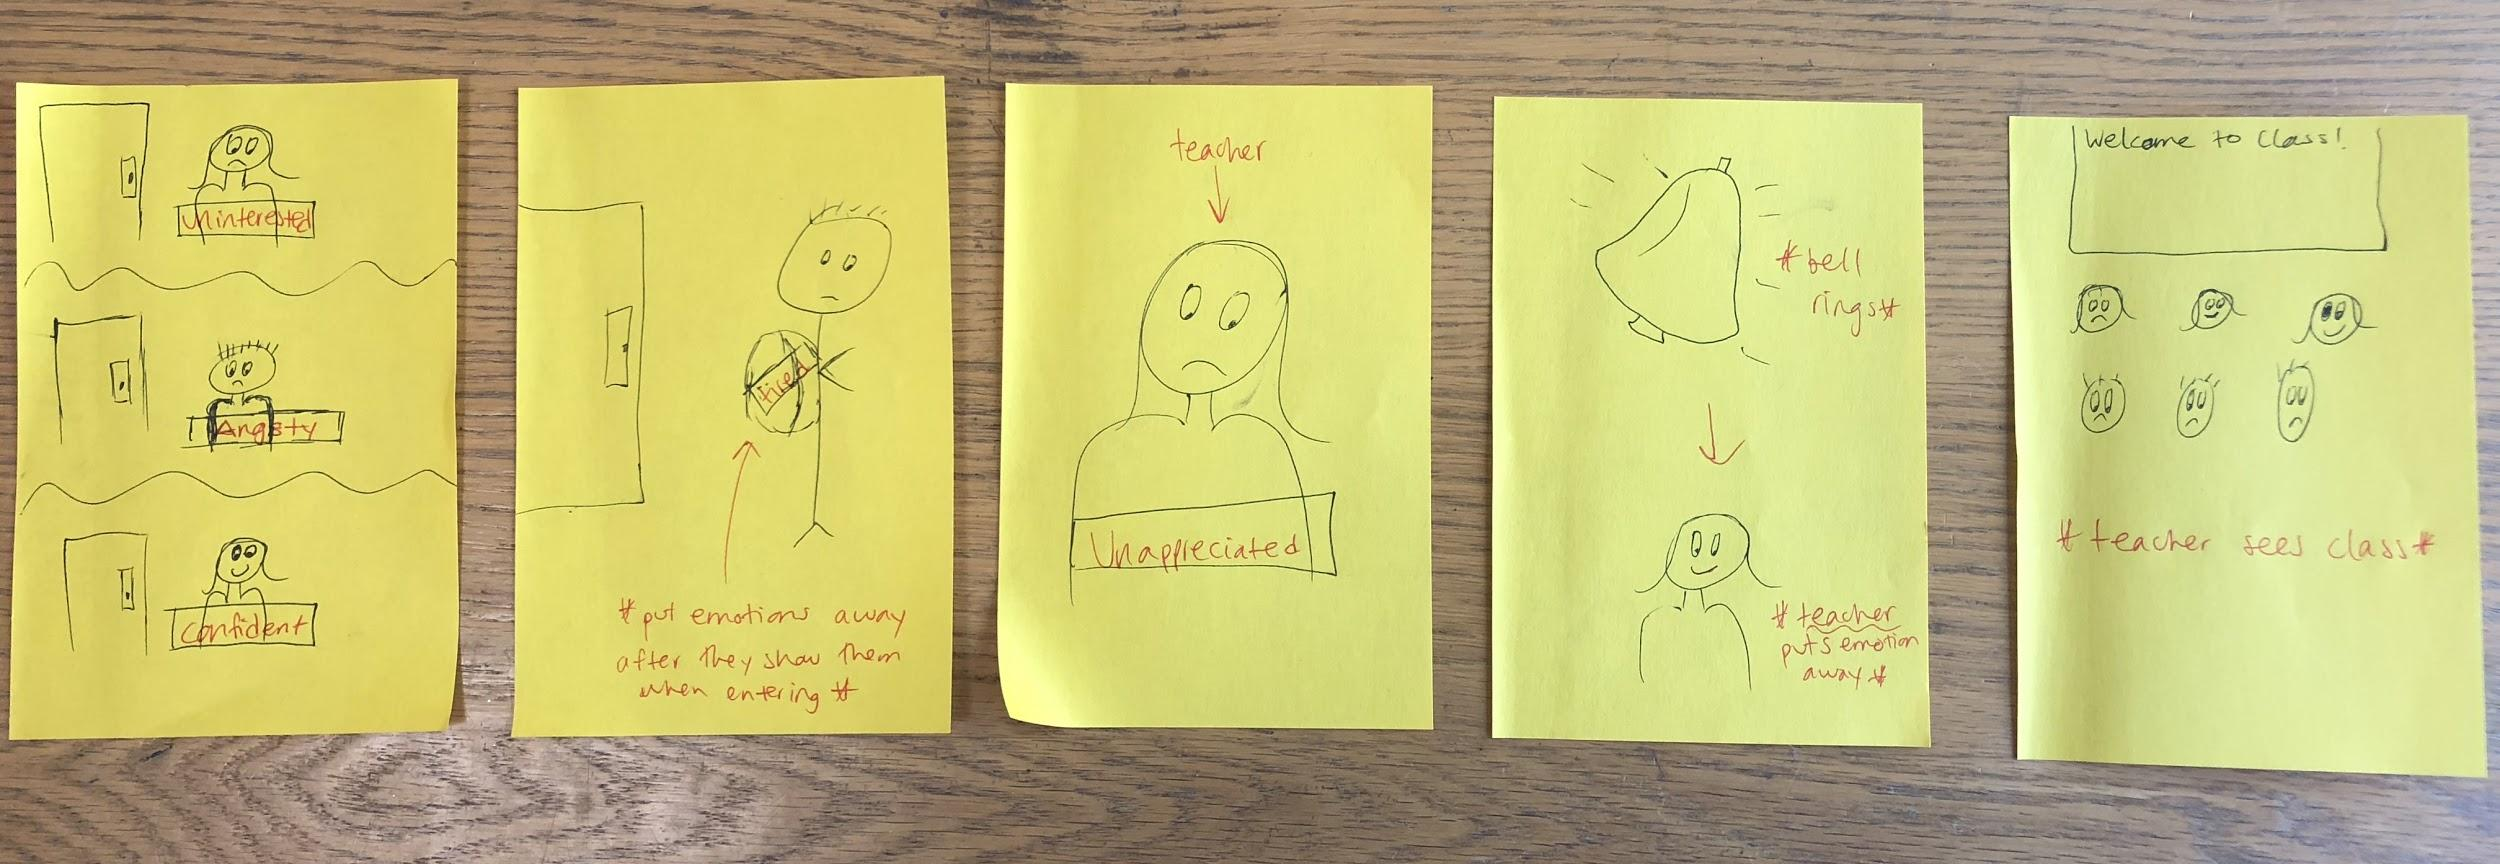 Uninterested
Angsty
confident
tired
*put emotions away
after they show them
when entering *
teacher
Unappreciated
*bell
rings*
* teacher
puts emotion
away *
Welcome to Class!
* teacher sees class*